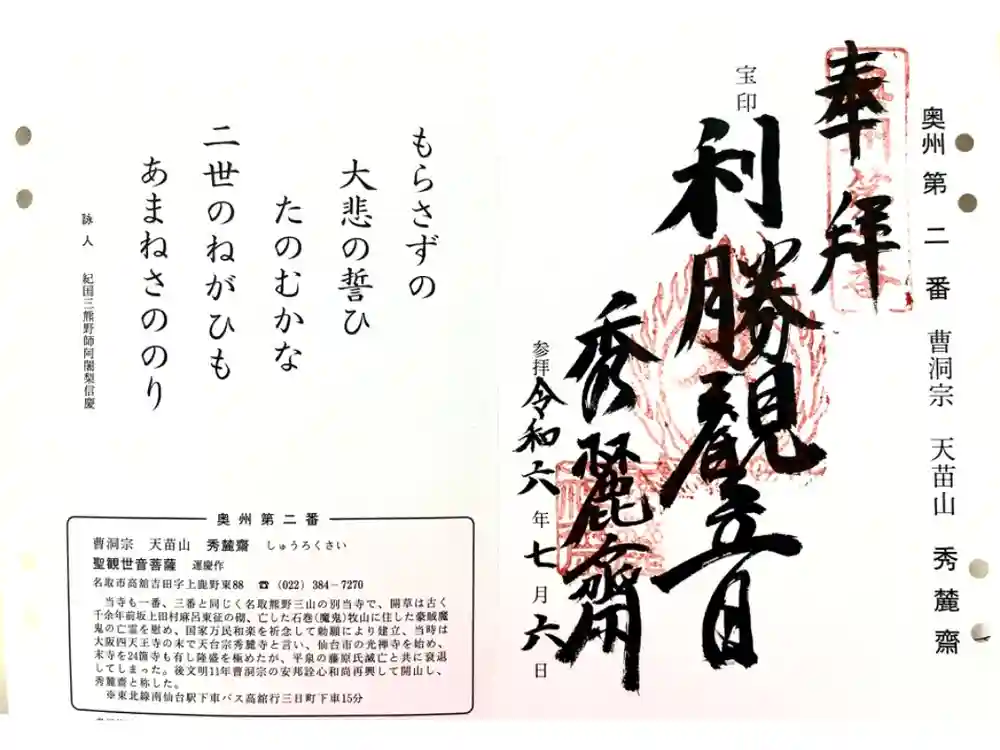 奥州第二番 曹洞宗 天苗山 秀麓齋
奉拝
宝印
利勝観音
秀麗齋
参拝 令和六年七月六日
もらさずの
大悲の誓ひ
たのむかな
二世のねがひも
あまねさののり
詠人 紀国三熊野師阿闍梨信慶
奥州第二番
曹洞宗 天苗山 秀麓齋 しゅうろくさい
聖観世音菩薩 運慶作
名取市高舘吉田字上鹿野東88 ☎(022)384−7270
当寺も一番、三番と同じく名取熊野三山の別当寺で、開草は古く
千余年前坂上田村麻呂東征の砌、亡した石巻(魔鬼)牧山に住した豪賊魔
鬼の亡霊を慰め、国家万民和楽を祈念して勅願により建立、当時は
大阪四天王寺の末で天台宗秀麓寺と言い、仙台市の光禅寺を始め、
末寺を24箇寺も有し隆盛を極めたが、平泉の藤原氏滅亡と共に衰退
してしまった。後文明11年曹洞宗の安邦詮心和尚再興して開山し、
秀麓齋と称した。
※東北線南仙台駅下車バス高舘行三日町下車15分